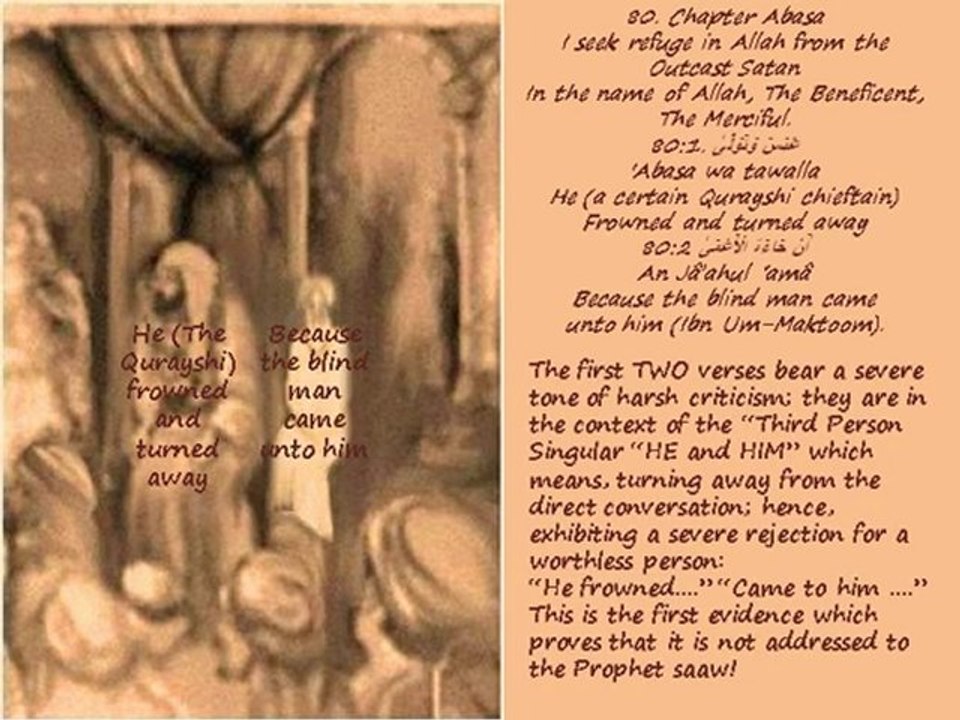 He (The
Qurayshi)
frowned
and
turned
away
Because
the blind
man
came
unto him
80. Chapter Abasa
I seek refuge in Allah from the
Outcast Satan
In the name of Allah, The Beneficent,
The Merciful.
80:1. عَبَسَ وَتَوَلَّىٰ
'Abasa wa tawalla
He (a certain Qurayshi chieftain)
Frowned and turned away
80:2 أَن جَاءَهُ الْأَعْمَىٰ
An Jâ'ahul 'amâ
Because the blind man came
unto him (Ibn Um-Maktoom).
The first TWO verses bear a severe
tone of harsh criticism; they are in
the context of the "Third Person
Singular "HE and HIM" which
means, turning away from the
direct conversation; hence,
exhibiting a severe rejection for a
worthless person:
"He frowned...." "Came to him ...."
This is the first evidence which
proves that it is not addressed to
the Prophet saaw!